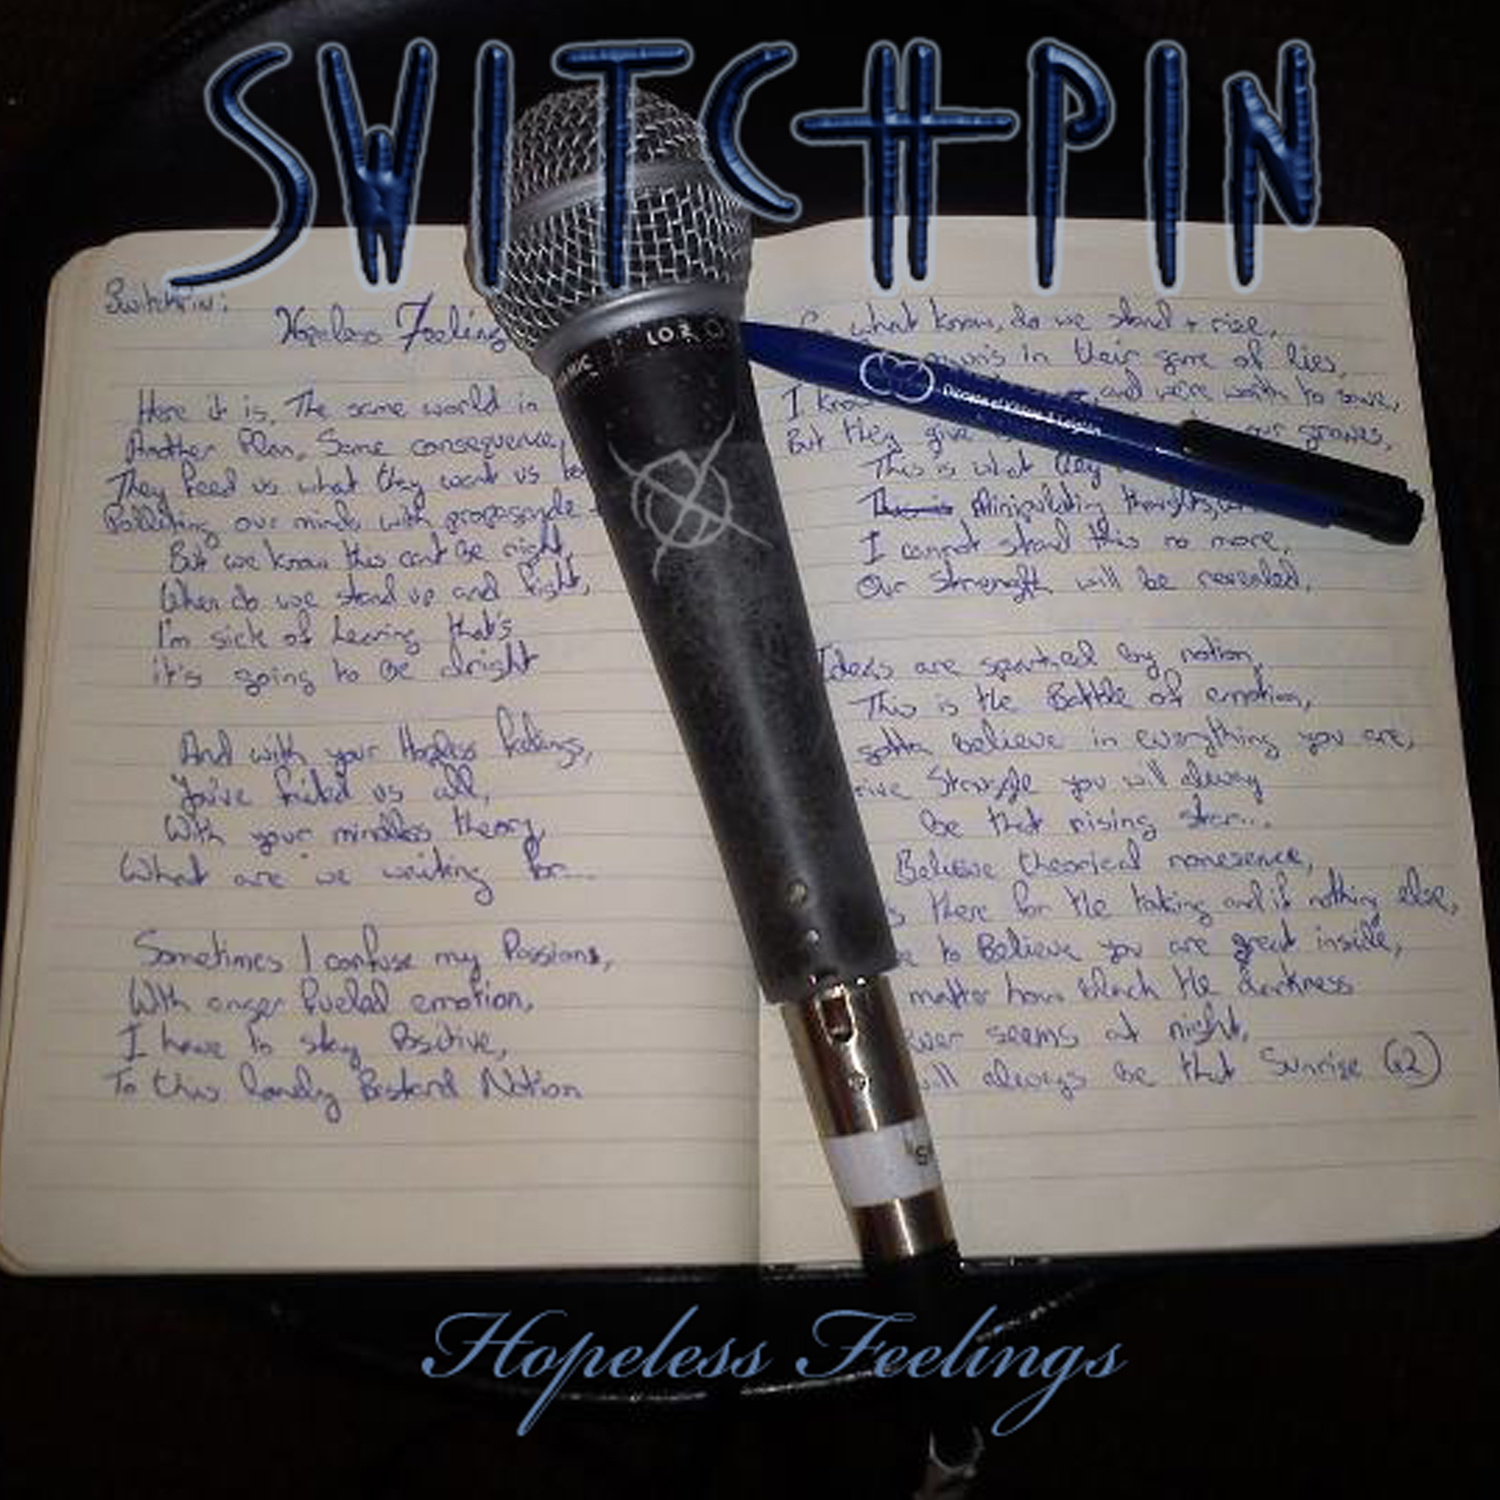 SWITCHPIN
Switchpin:
Hopeless Feeling
Here it is, The same world in
Another Plan, Same consequence,
They feed us what they want us to
Polluting our minds with propaganda
But we know this can't be right,
When do we stand up and fight,
I'm sick of hearing that's
it's going to be alright
And with your Hopeless feelings,
You've failed us all,
With your mindless theory,
What are we waiting for...
Sometimes I confuse my Passions,
With anger fueled emotion,
I have to stay Positive,
To this lonely Bastard Notion
what know, do we stand + rise,
in their game of lies,
I know and we're worth to save,
But they give our graves,
This is what they
Minipulating thoughts,
I cannot stand this no more,
Our strength will be revealed,
Ideas are sparked by notion,
This is the Battle of emotion,
gotta believe in everything you are,
Struggle you will alway
be that rising star...
Believe theorical nonesence,
there for the taking and if nothing else,
to Believe you are great inside,
matter how black the darkness
seems at night,
always be that Sunrise (x2)
LO.Z
Hopeless Feelings